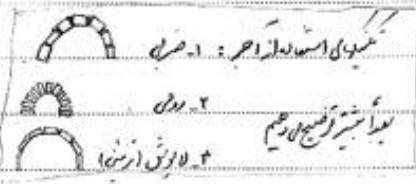 تکنیکهای استفاده از آجر : ۱ـ ضربی
۲ـ رومی
بعداً بیشتر توضیح می دهیم
۳ـ لاپوش (ارمنی)